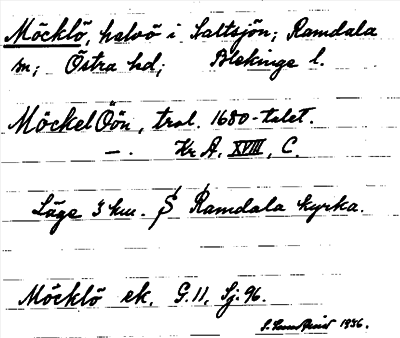 Möcklö, halvö i Saltsjön; Ramdala
sn; Östra hd; Blekinge l.
Möckel Öön, trol. 1680-talet.
—. Kr A, XVIII, C.
Läge 3 km. S Ramdala kyrka.
Möcklö ek. G.11, Sj. 96.
1936.